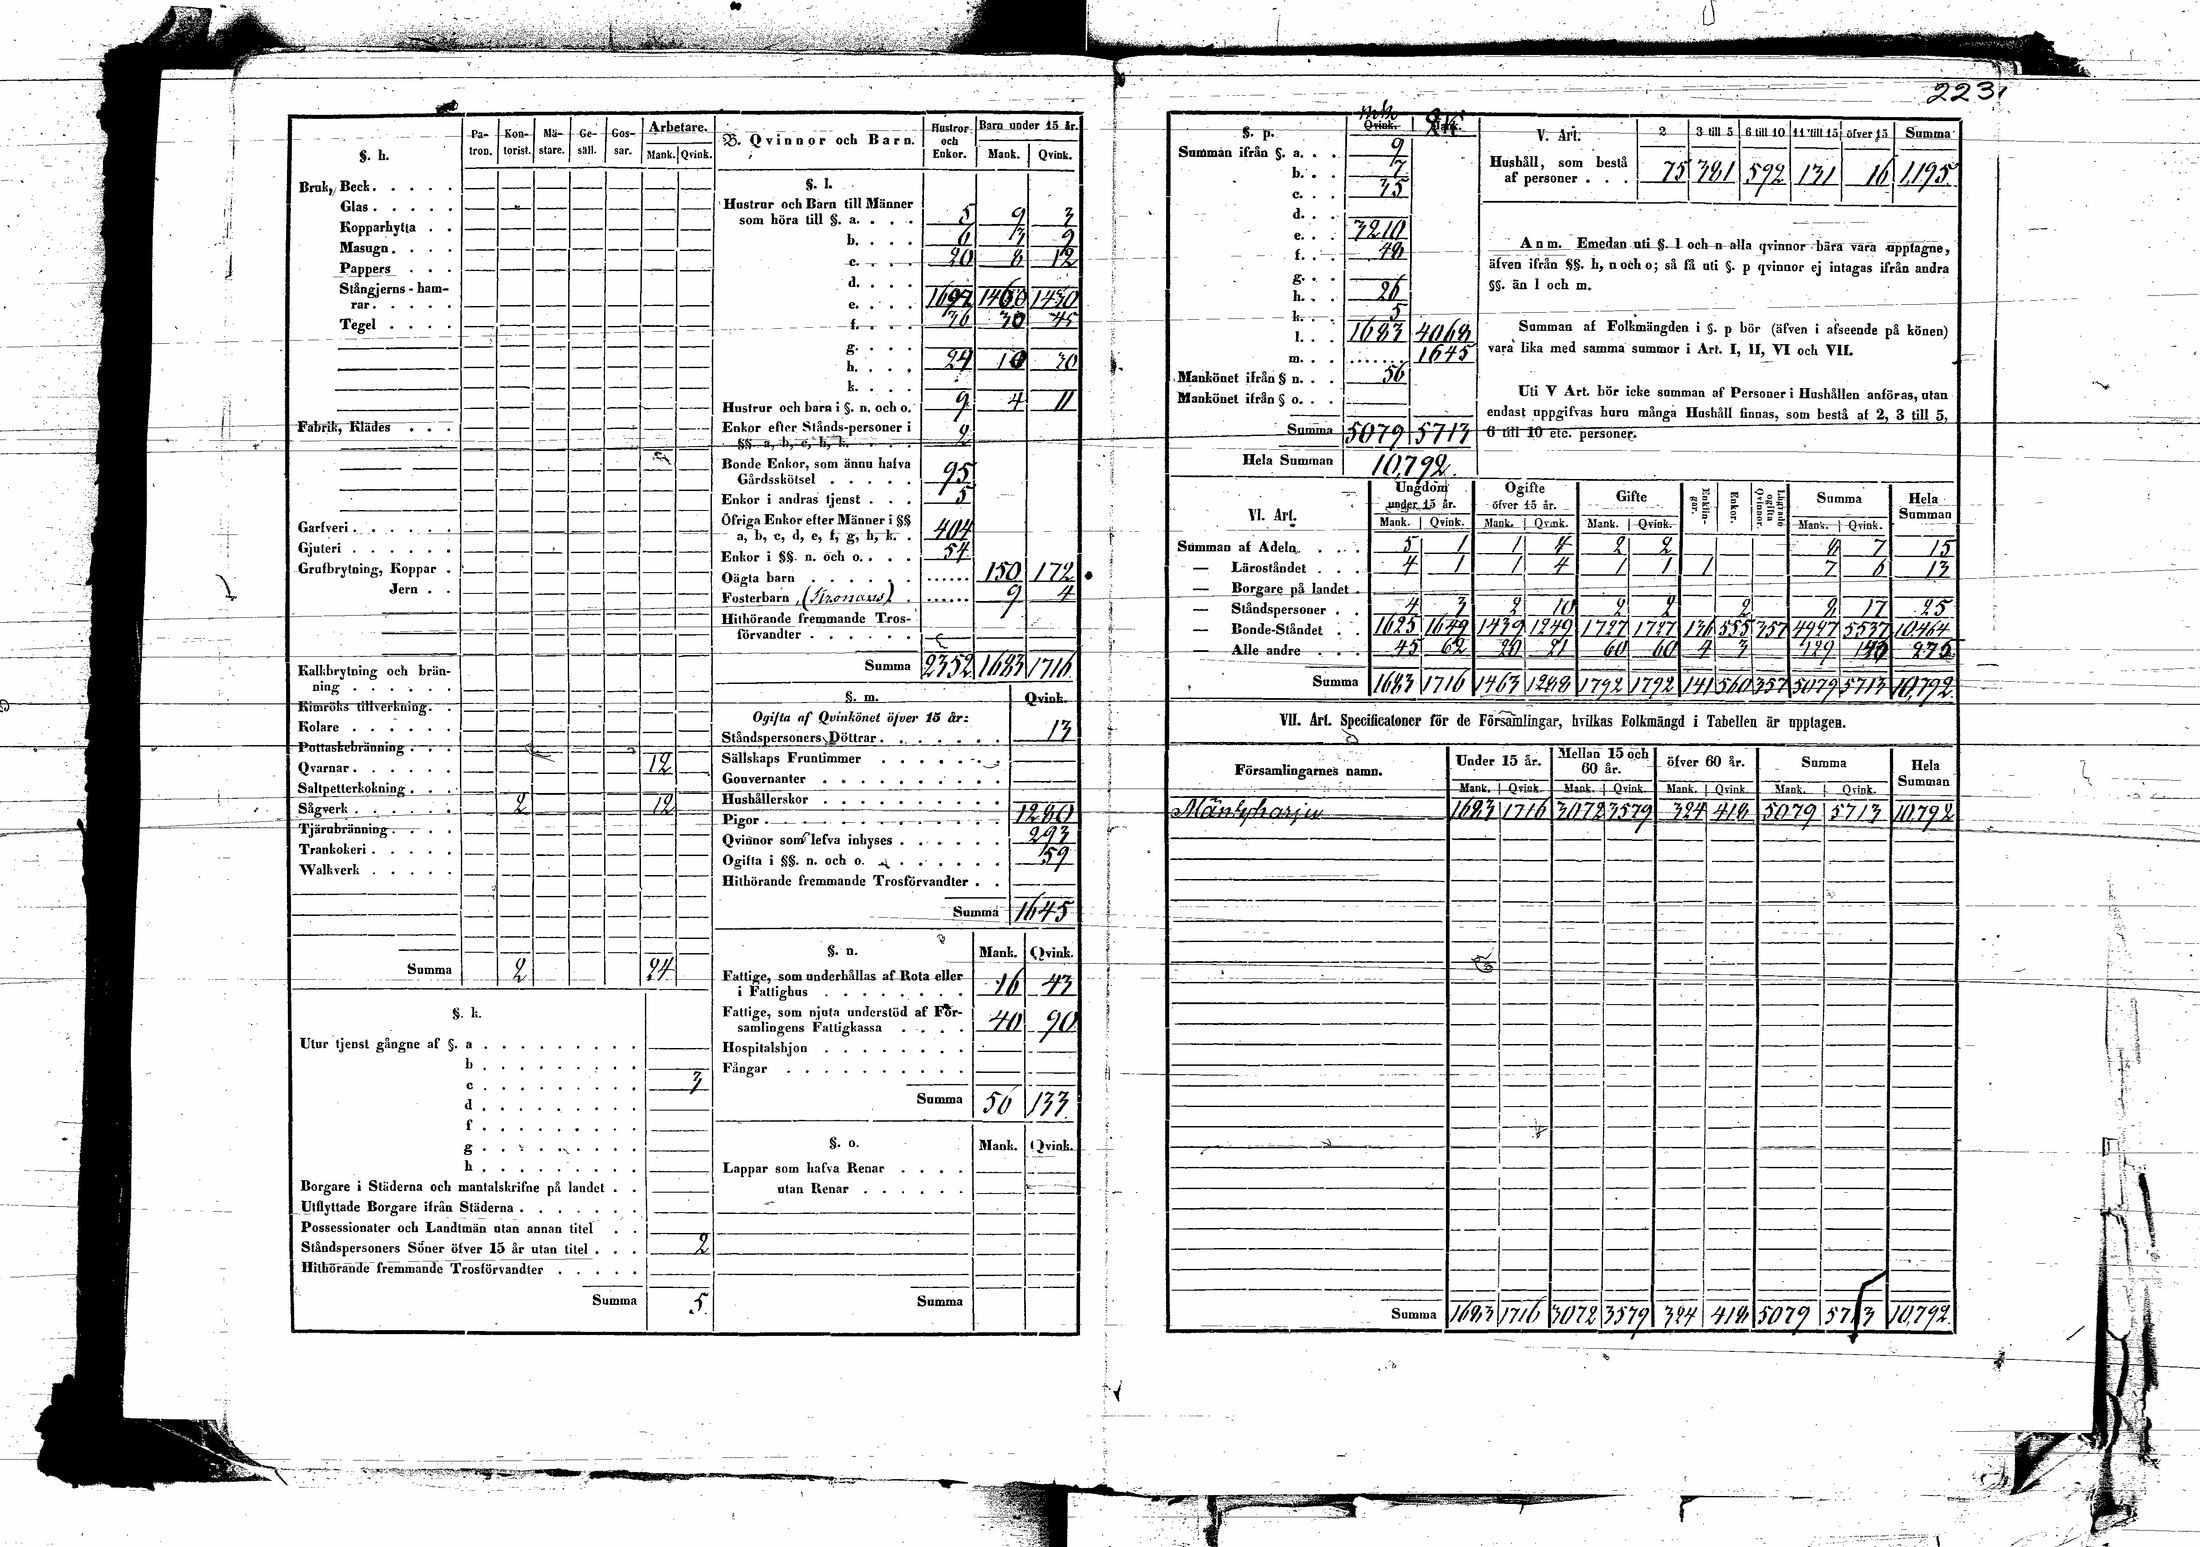 223
§. h.
Pa-tron.
Kon-torist.
Mä-stare.
Ge-säll.
Gos-sar.
Arbetare.
Mank. Qvink.
Bruk, Beck . . . . .
Glas . . . . .
Kopparhytta . .
Masugn . . . .
Pappers . . .
Stångjerns-ham-
rar . . . . .
Tegel . . . .
Fabrik, Klädes . . .
Garfveri . . . . . .
Gjuteri . . . . . .
Grufbrytning, Koppar .
Jern . .
Kalkbrytning och brän-
ning . . . . . .
Kimröks tillverkning. .
Kolare . . . . . .
Pottaskebränning . . .
Qvarnar . . . . . . 12
Saltpetterkokning . . .
Sågverk . . . . . 2 12
Tjärubränning . . . .
Trankokeri . . . . .
Walkverk . . . . .
Summa 2 24
§. k.
Utur tjenst gångne af §. a . . . . . . . . .
b . . . . . . . . .
c . . . . . . . . . 3
d . . . . . . . . .
f . . . . . . . . .
g . . . . . . . . .
h . . . . . . . . .
Borgare i Städerna och mantalskrifne på landet . .
Utflyttade Borgare ifrån Städerna . . . . . . .
Possessionater och Landtmän utan annan titel . .
Ståndspersoners Söner öfver 15 år utan titel . . . 2
Hithörande fremmande Trosförvandter . . . . .
Summa 5
B. Qvinnor och Barn.
Hustror och Enkor.
Barn under 15 år.
Mank. Qvink.
§. l.
Hustrur och Barn till Männer
som höra till §. a. . . . 5 9 3
b. . . . 6 3 9
c. . . . 20 8 12
d. . . .
e. . . . 1692 1460 1430
f. . . . 36 30 45
g. . . .
h. . . . 24 10 30
k. . . .
Hustrur och barn i §. n. och o. 9 4 11
Enkor efter Stånds-personer i
§§. a, b, c, h, k. . . . 2
Bonde Enkor, som ännu hafva
Gårdsskötsel . . . . . 95
Enkor i andras tjenst . . . 5
Öfriga Enkor efter Männer i §§
a, b, c, d, e, f, g, h, k. . 404
Enkor i §§. n. och o. . . . 54
Oägta barn . . . . . . 150 172
Fosterbarn . 9 4
Hithörande fremmande Tros-
förvandter . . . . . .
Summa 2352 1683 1716
§. m. Qvink.
Ogifta af Qvinkönet öfver 15 år:
Ståndspersoners Döttrar . . . . . . 13
Sällskaps Fruntimmer . . . . . .
Gouvernanter . . . . . . . . .
Hushållerskor . . . . . . . . .
Pigor . . . . . . . . . . . . 1280
Qvinnor som lefva inhyses . . . . . . 293
Ogifta i §§. n. och o. . . . . . . . 59
Hithörande fremmande Trosförvandter . .
Summa 1645
§. n. Mank. Qvink.
Fattige, som underhållas af Rota eller
i Fattighus . . . . . . . . 16 43
Fattige, som njuta understöd af För-
samlingens Fattigkassa . . . . 40 90
Hospitalshjon . . . . . . . .
Fångar . . . . . . . . . .
Summa 56 133
§. o. Mank. Qvink.
Lappar som hafva Renar . . . .
utan Renar . . . . . .
Summa
§. p. Qvink. Mank.
Summan ifrån §. a. . . 9
b. . . 7
c. . . 35
d. . .
e. . . 3210
f. . . 48
g. . .
h. . . 26
k. . . 5
l. . . 1683 4068
m. . . 1645
Mankönet ifrån § n. . . 56
Mankönet ifrån § o. . .
Summa 5079 5713
Hela Summan 10,792.
V. Art. 2 3 till 5 6 till 10 11 till 15 öfver 15 Summa
Hushåll, som bestå
af personer . . . 75 381 592 131 16 1,195
Anm. Emedan uti §. l och n alla qvinnor bära vara upptagne,
äfven ifrån §§. h, n och o; så få uti §. p qvinnor ej intagas ifrån andra
§§. än l och m.
Summan af Folkmängden i §. p bör (äfven i afseende på könen)
vara lika med samma summor i Art. I, II, VI och VII.
Uti V Art. bör icke summan af Personer i Hushållen anföras, utan
endast uppgifvas huru många Hushåll finnas, som bestå af 2, 3 till 5,
6 till 10 etc. personer.
VI. Art.
Ungdom under 15 år.
Ogifte öfver 15 år.
Gifte
Enklin-gar.
Enkor.
Lägrade ogifta Qvinnor.
Summa
Hela Summan
Mank. Qvink. Mank. Qvink. Mank. Qvink. Mank. Qvink.
Summan af Adeln . . . . 5 1 1 4 2 2 8 7 15
— Läroståndet . . . 4 1 1 4 1 1 1 7 6 13
— Borgare på landet .
— Ståndspersoner . . 4 3 2 10 2 2 2 8 17 25
— Bonde-Ståndet . . 1625 1649 1439 1249 1727 1727 136 555 357 4927 5537 10,464
— Alle andre . . . 45 62 20 21 60 60 4 3 129 146 275
Summa 1683 1716 1463 1288 1792 1792 141 560 357 5079 5713 10,792.
VII. Art. Specificatoner för de Församlingar, hvilkas Folkmängd i Tabellen är upptagen.
Församlingarnes namn.
Under 15 år.
Mellan 15 och 60 år.
öfver 60 år.
Summa
Hela Summan
Mank. Qvink. Mank. Qvink. Mank. Qvink. Mank. Qvink.
Mäntyharju 1683 1716 3072 3579 324 418 5079 5713 10,792
Summa 1683 1716 3072 3579 324 418 5079 5713 10,792.